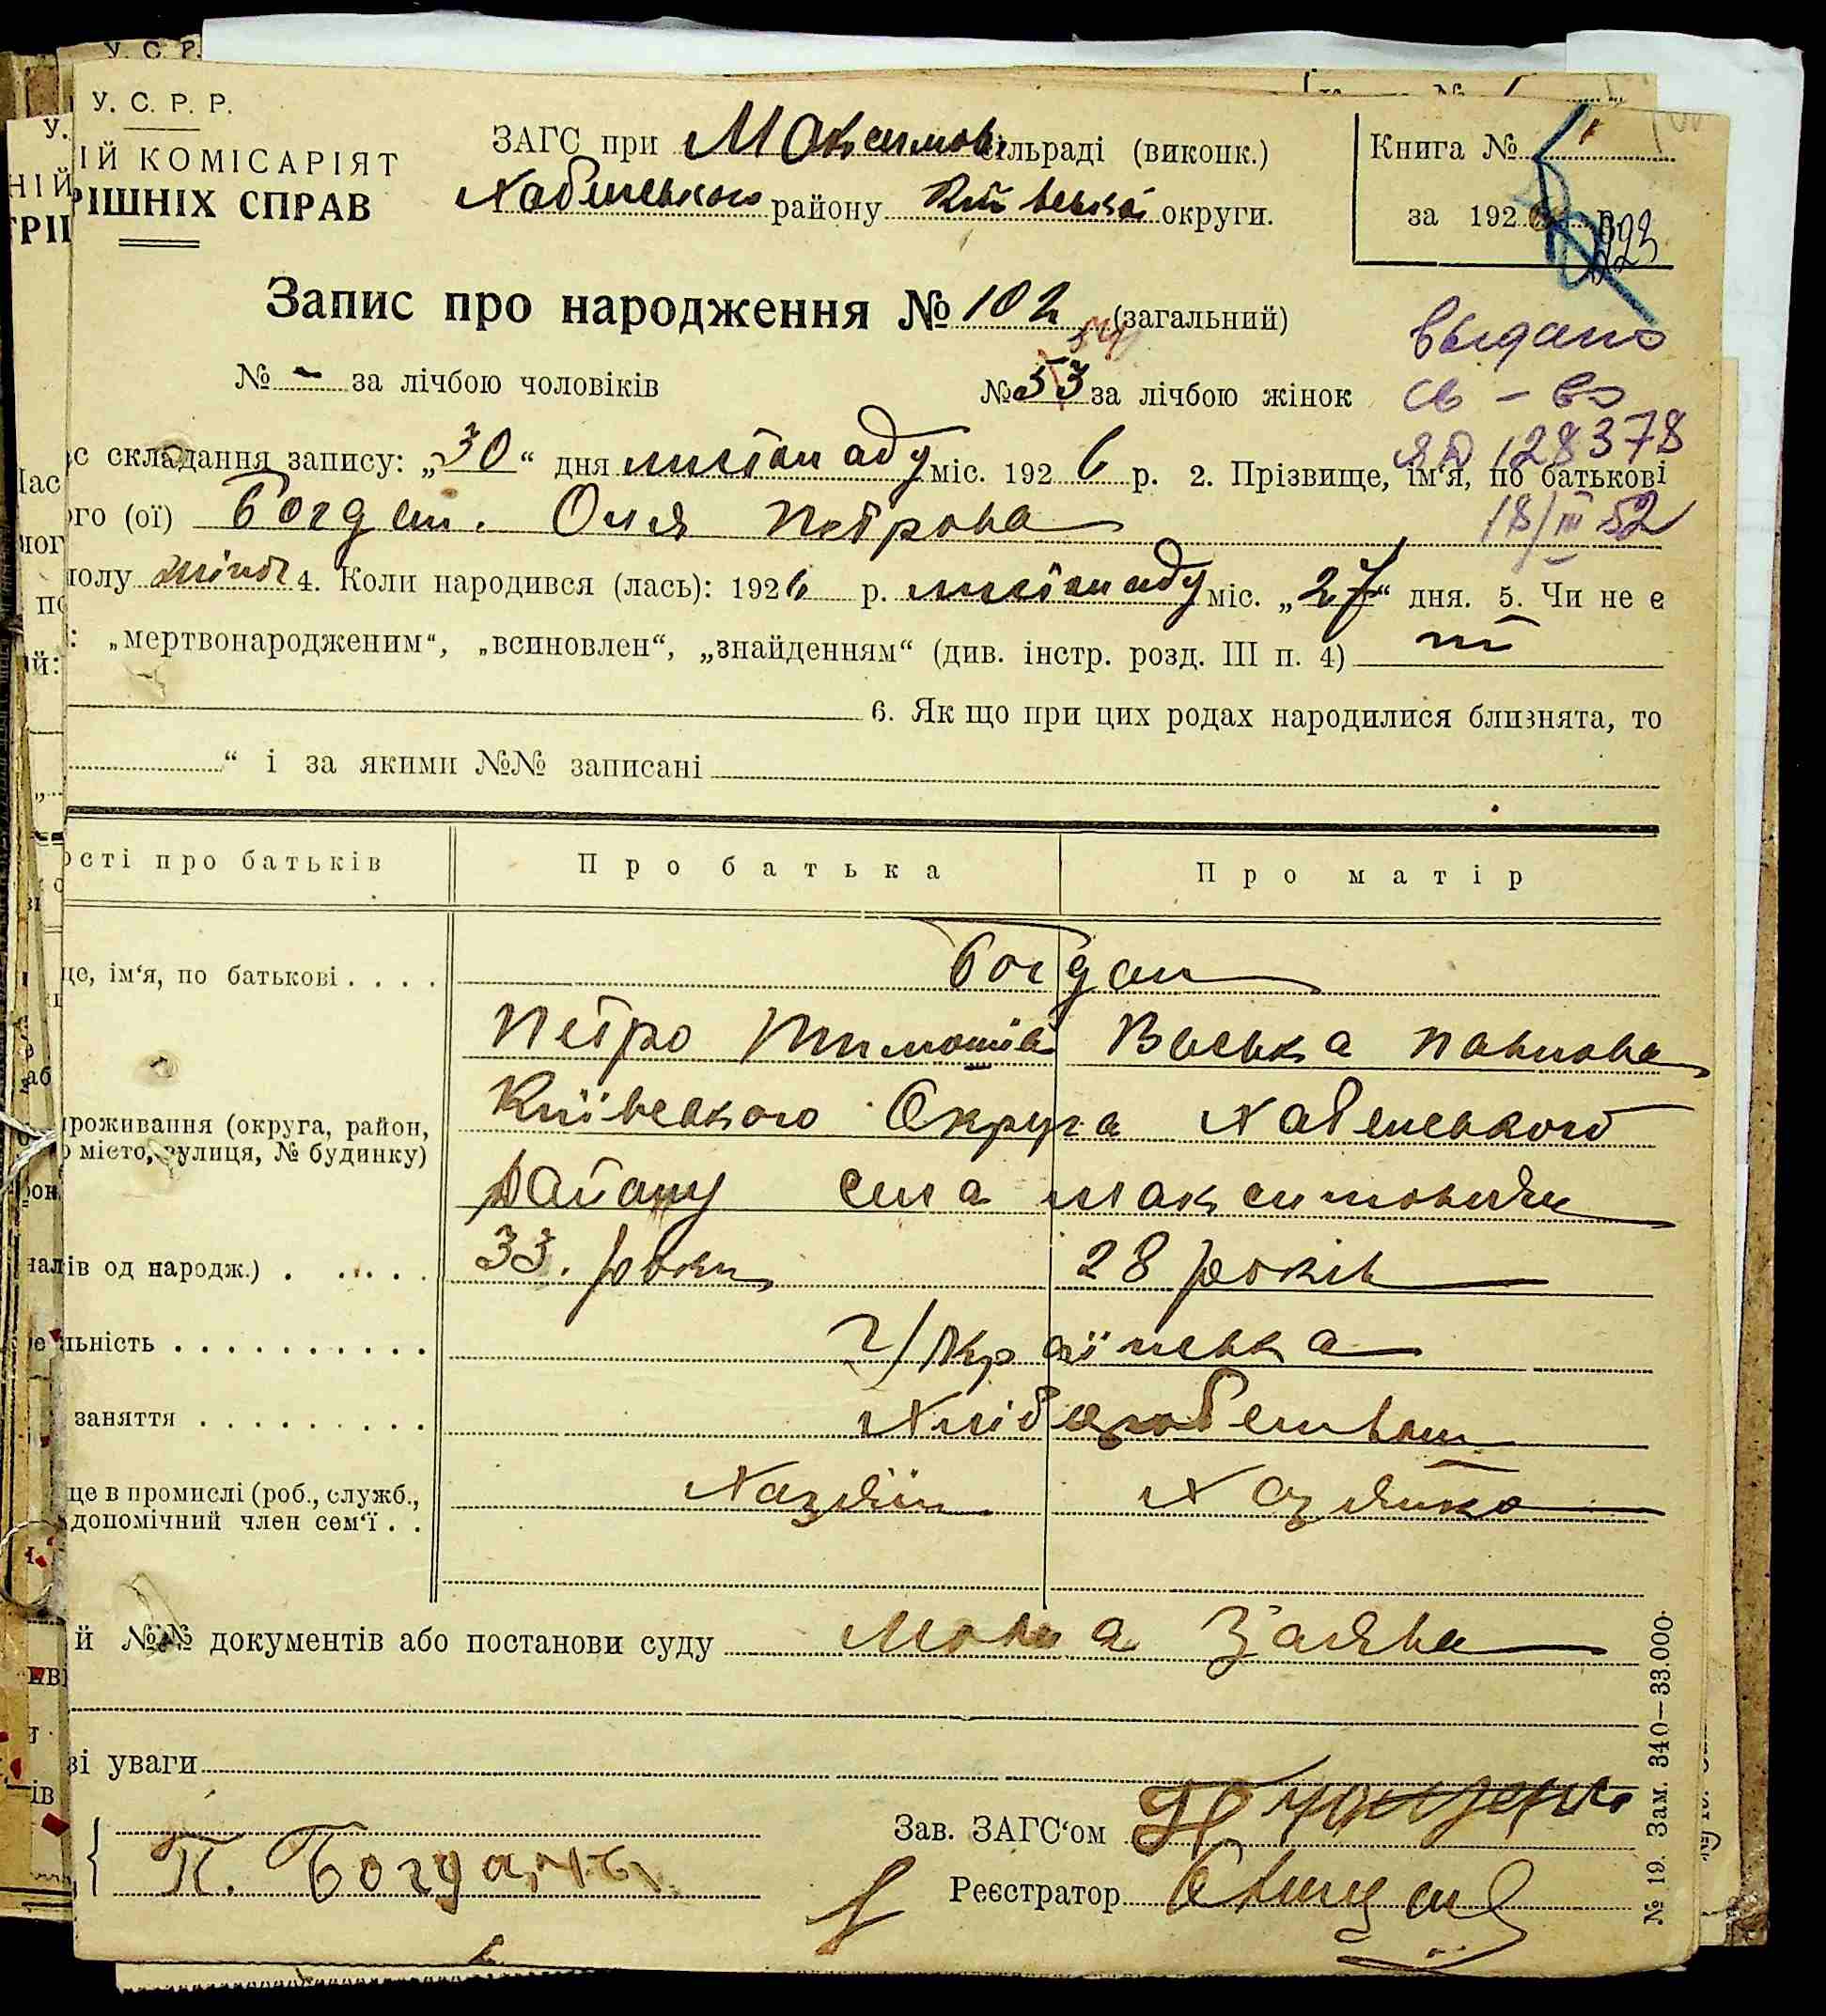 У. С. Р. Р.
ІЙ КОМІСАРІЯТ
РІШНІХ СПРАВ
ЗАГС при Максимов. сільраді (виконк.)
Хабенського району Київської округи.
Книга №
за 192 р.
923
Запис про народження № 102 (загальний)
№ - за лічбою чоловіків
№ 53 за лічбою жінок
54
выдано
св-во
ЯД 128378
18/III 52
ас складання запису: „30“ дня листопаду міс. 192 6 р. 2. Прізвище, ім‘я, по батькові
ого (ої) Богдан. Оля Петрова
полу жіноч 4. Коли народився (лась): 1926 р. листопаду міс. „27“ дня. 5. Чи не є
: „мертвонародженим“, „всиновлен“, „знайденням“ (див. інстр. розд. III п. 4) ні
6. Як що при цих родах народилися близнята, то
“ і за якими №№ записані
ості про батьків
Про батька
Про матір
це, ім‘я, по батькові . . . .
Богдан
Петро Тимошів
Васька Павлова
проживання (округа, район,
о місто, вулиця, № будинку)
Київського Округа Хабенського
Району села Максимовичи
налів од народж.) . . . . .
33. роки
28 років
льність . . . . . . . . . . .
Українська
заняття . . . . . . . . . .
Хлібаробством
це в промислі (роб., служб.,
допомічний член сем‘ї . .
Хазяїн
Хазяйка
й №№ документів або постанови суду Мовна Заява
ві уваги
Зав. ЗАГС‘ом
П. Богдан
Реєстратор
№ 19. Зам. 340—33.000.